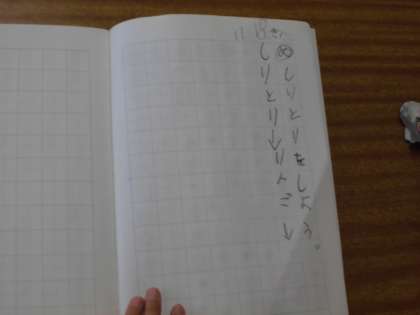 めしりとりをしよう。
しりとり→りんご→